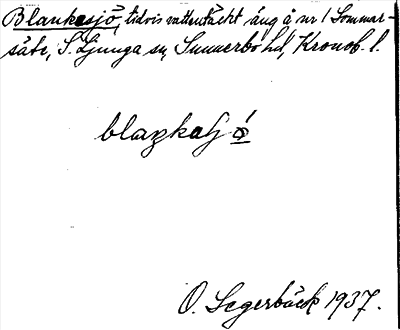 Blankesjö, tidvis vattentäckt äng å nr 1 Sommar-
säte, S. Ljunga sn, Sunnerbo hd, Kronob. l.
O. Segerbäck 1937.